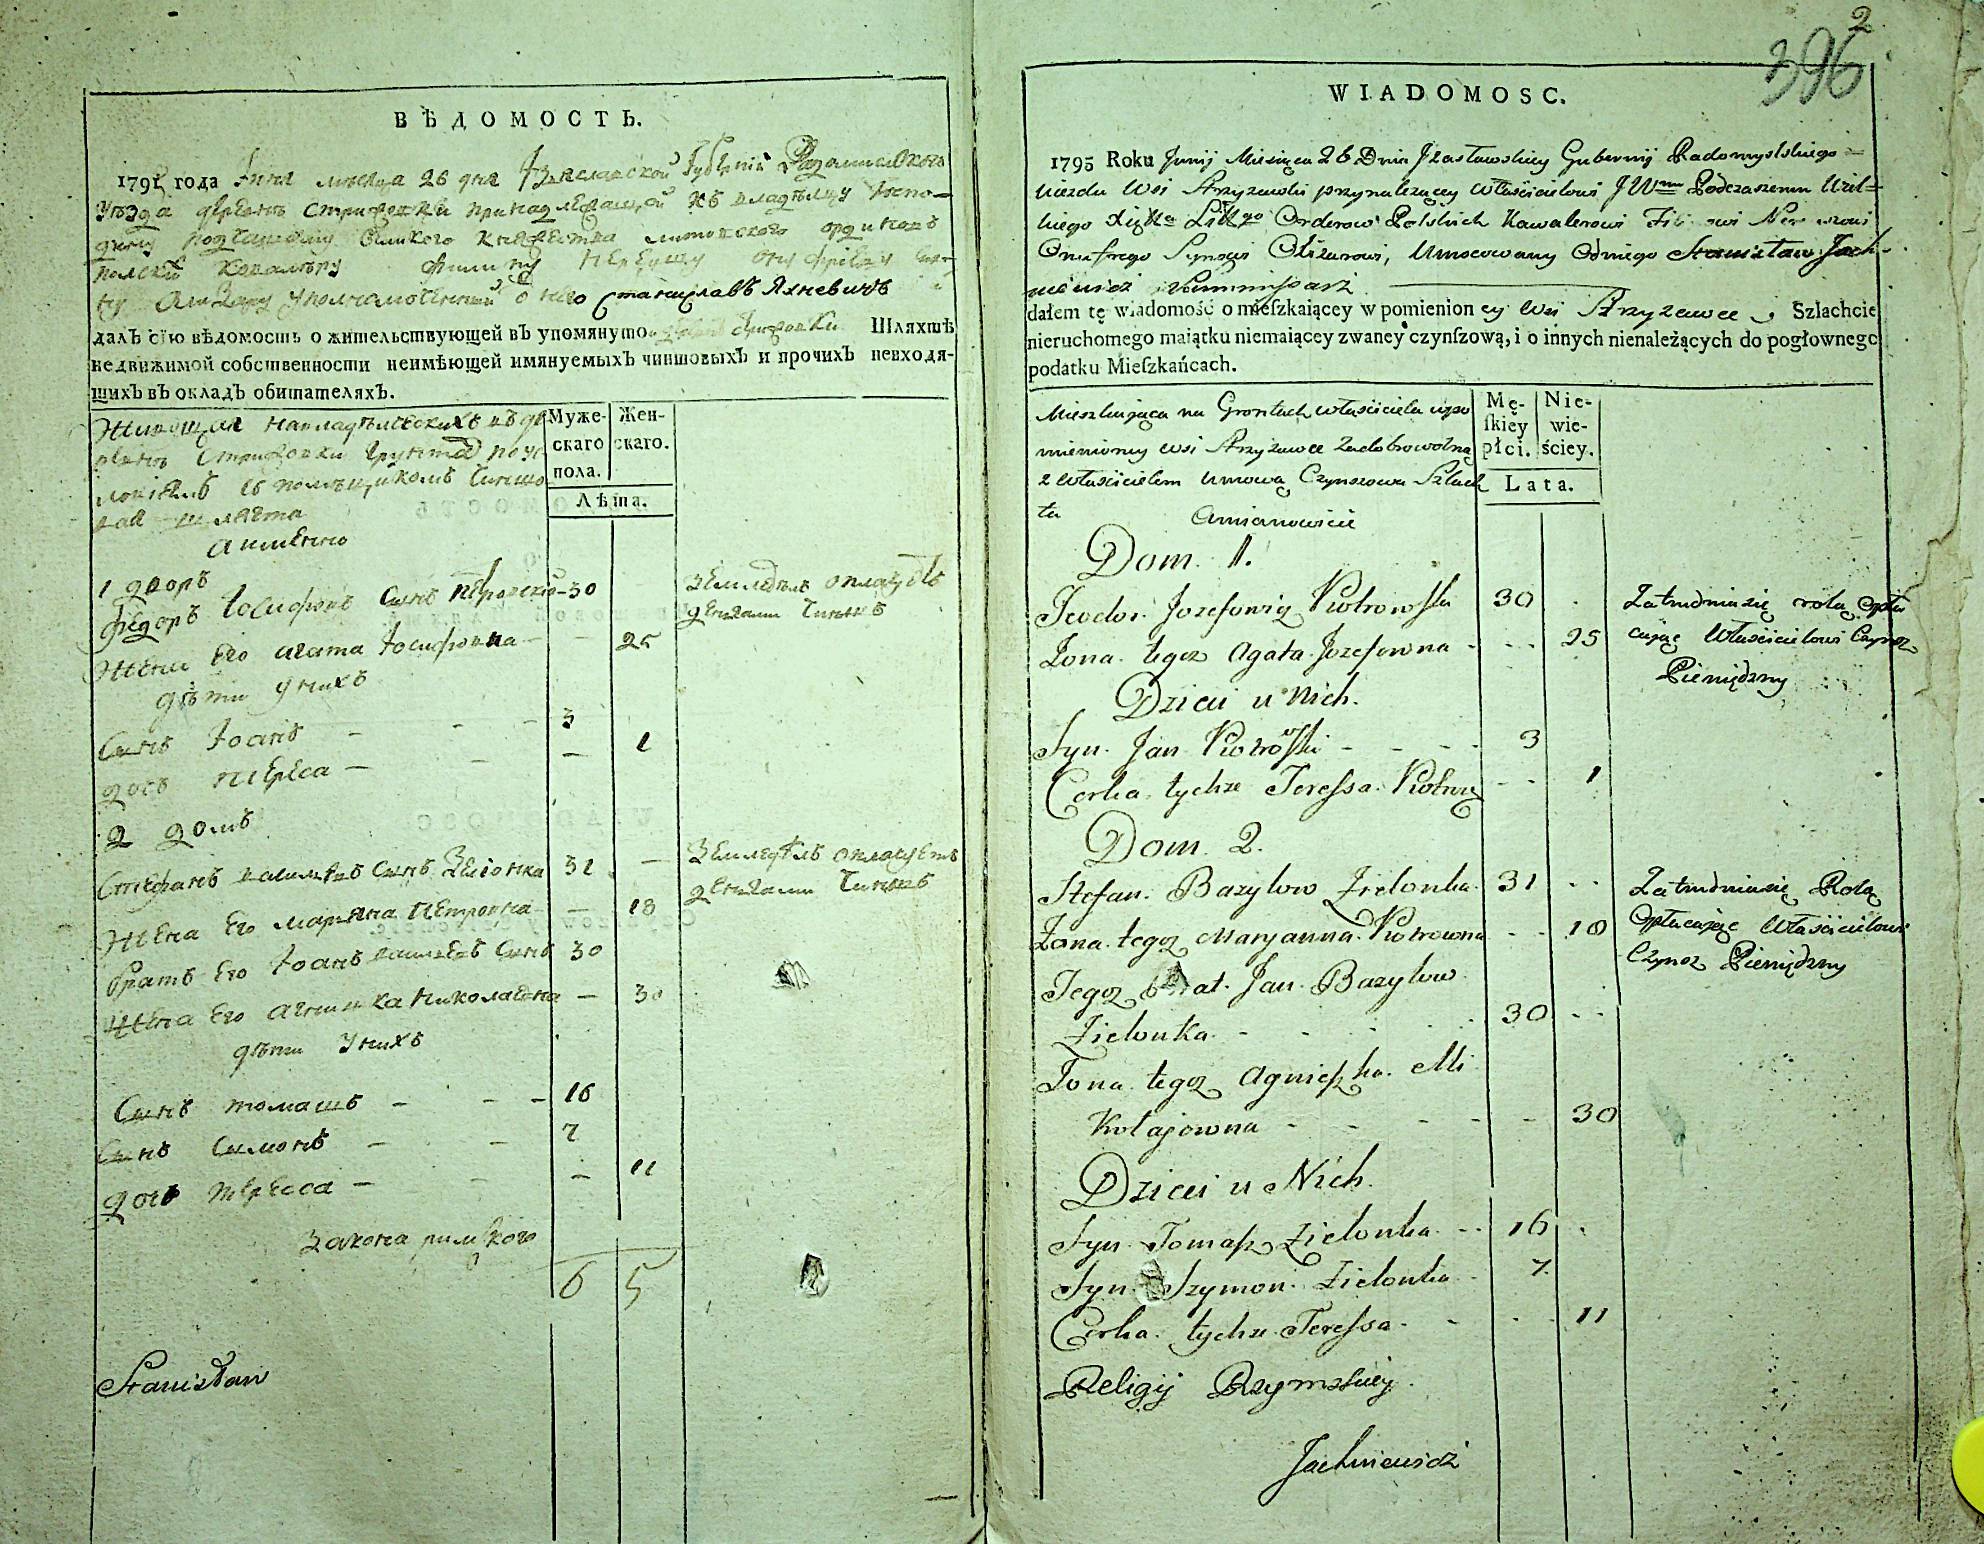 ВѢДОМОСТЬ.
1795 года Іюня мѣсяца 26 дня Изяславской Губерніи Радомысльского
уѣзда деревнѣ Стрижовки принадлежащой владѣльцу Госпо-
дину подчашему Великого Княжества Литовского ординовъ
полскихъ Кавалеру Филипу Нереушу Онуфрему
Олизару Уполномоченный о него Станиславъ Яхневичъ
далъ сію вѣдомость о жительствующей въ упомянуто Шляхтѣ
недвижимой собственности неимѣющей имянуемыхъ чиншовыхъ и прочихъ невходя-
щихъ въ окладъ обитателяхъ.
Живущая на владѣльческихъ въ де
ревнѣ Стрижовки грунтах по ус
ловіямъ съ помѣщикомъ Чиншо
вая шляхта
а имѣнно
Муже-
скаго
пола.
Жен-
скаго.
Лѣта.
1 дворъ
Федоръ Іосифовъ Сынъ Петровский 30
Земледѣль оплачуетъ
денгами Чиншъ
Жена Его Агата Іосифовна 25
дѣти у нихъ
Сынъ Іоанъ 3
дочь Тереса 1
2 домъ
Стефанъ василевъ Сынъ Зелонка 31
Земледѣлъ оплачуетъ
денгами Чиншъ
Жена Его Марьяна Петровна 18
братъ Его Іоанъ василевъ Сынъ 30
Жена Его Агнишка Николаевна 30
дѣти у нихъ
Сынъ томашъ 16
Сынъ Симонъ 7
дочь тересса 11
Закона римского
6 5
Stanisław
2
396
WIADOMOSC.
1795 Roku Junij Miesiąca 26 Dnia Jzasławskiey Gubernij Radomyslskiego
uiezdu Wsi Stryzowki przynalezącey Właścicielowi JWmu Podczaszemu Wiel=
kiego Litgo Orderow Polskich Kawalerowi
Onufrego Synowi Olizarowi, Umocowany Odniego Stanisław Jach-
niewicz Kommissarz
dałem tę wiadomość o mieſzkaiącey w pomienion ey Wsi Stryzewce, Szlachcie
nieruchomego maiątku niemaiącey zwaney czynſzową, i o innych nienależących do pogłownego
podatku Mieſzkańcach.
Mieszkająca na Grontach właściciela wspo
mnioney wsi Stryzewce Zadobrowolną
z właścicielem umową Czynszowa Szlach
ta
Amianowicie
Mę-
ſkiey
płci.
Nie-
wie-
ściey.
Lata.
Dom. 1.
Teodor Jozefowicz Piotrowski 30
Zatrudniasię rolą Opła
cając Właścicielowi Czynsz
Pieniędzmy
Zona tegoz Agata Jozefowna 25
Dzieci u Nich.
Syn Jan Piotrowski 3
Corka tychze Teressa Piotrow 1
Dom 2.
Stefan Bazylow Zielonka 31
Zatrudniasię Rolą
Opłacając Właścicielowi
Czynsz Pieniędzmy
Zona tegoz Maryanna Piotrowna 18
Tegoz Brat Jan Bazylow
Zielonka 30
Zona tegoz Agnieszka Mi
kołajowna 30
Dzieci u Nich.
Syn Tomasz Zielonka 16
Syn Szymon Zielonka 7
Corka tychze Teressa 11
Religij Rzymskiey.
Jachniewicz